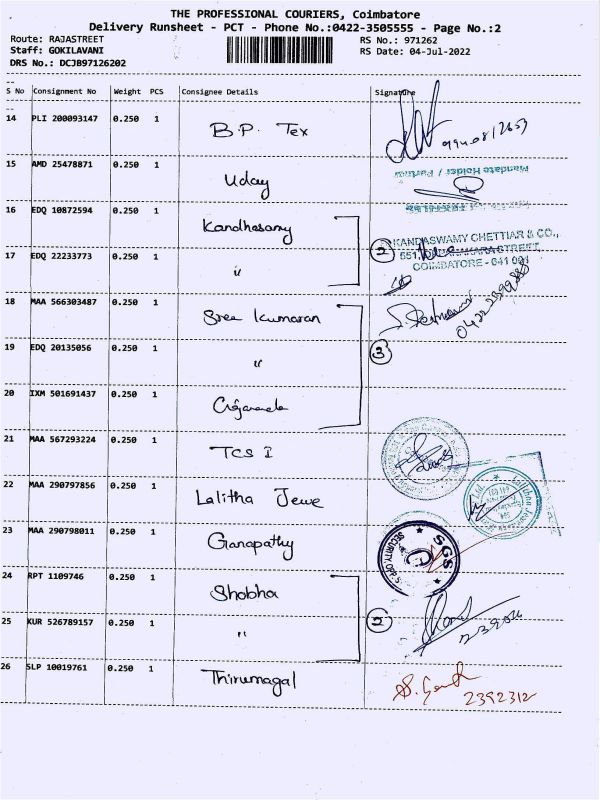 THE PROFESSIONAL COURIERS, Coimbatore
Delivery Runsheet - PCT - Phone No.:0422-3505555 - Page No.:2
Route: RAJASTREET RS No.: 971262
Staff: GOKILAVANI RS Date: 04-Jul-2022
DRS No.: DCJB97126202
S No Consignment No Weight PCS Consignee Details Signature
14 PLI 200093147 0.250 1 B.P. Tex
15 AMD 25478871 0.250 1 Uday
Mandate Holder / Partner
16 EDQ 10872594 0.250 1 Kandhasamy
2 KANDASWAMY CHETTIAR & CO.,
17 EDQ 22233773 0.250 1 "
COIMBATORE - 641 001
18 MAA 566303487 0.250 1 Sree Kumaran
19 EDQ 20135056 0.250 1 " 3
20 IXM 501691437 0.250 1
21 MAA 567293224 0.250 1 TCS I
22 MAA 290797856 0.250 1 Lalitha Jewe
23 MAA 290798011 0.250 1 Ganapathy
SGS
24 RPT 1109746 0.250 1 Shobha
25 KUR 526789157 0.250 1 " 2
26 SLP 10019761 0.250 1 Thirumagal
2392312